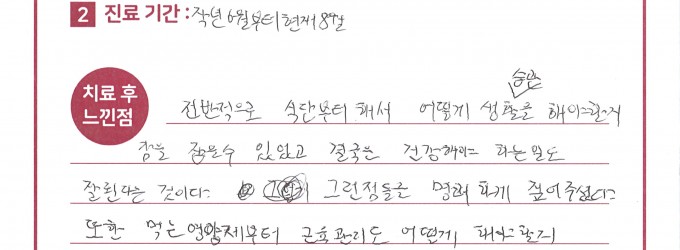 2 진료 기간 : 작년 6월부터 현재 8개월
치료 후
느낀점
습관
전반적으로 식단부터 해서 어떻게 생활을 해야할지
점을 잡을수 있었고 결국은 건강해야 하는일도
잘된다는 것이다. 그런점들을 명확하게 짚어주셨다
또한 먹는영양제부터 근육관리도 어떻게 해야할지